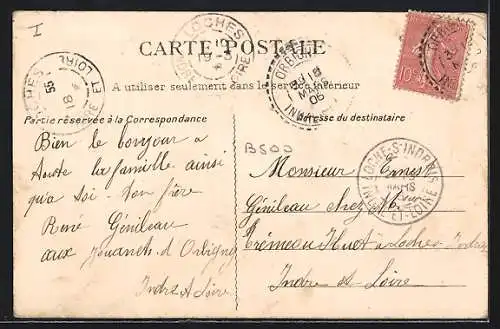 I
CARTE POSTALE
A utiliser seulement dans le service intérieur
Partie réservée à la Correspondance
Adresse du destinataire
LOCHES
19-3
INDRE ET LOIRE
ORBIGNY
MARS
06
INDRE-ET-LOIRE
10c
B500
Bien le bonjour a
toute la famille ainsi
qu'a toi - ton frère
René Génileau
aux Jouanets d'Orbigny
Indre et Loire
Monsieur Ernest
Génileau chez M.
Trémeau Huet à Loches Indre
Indre et Loire